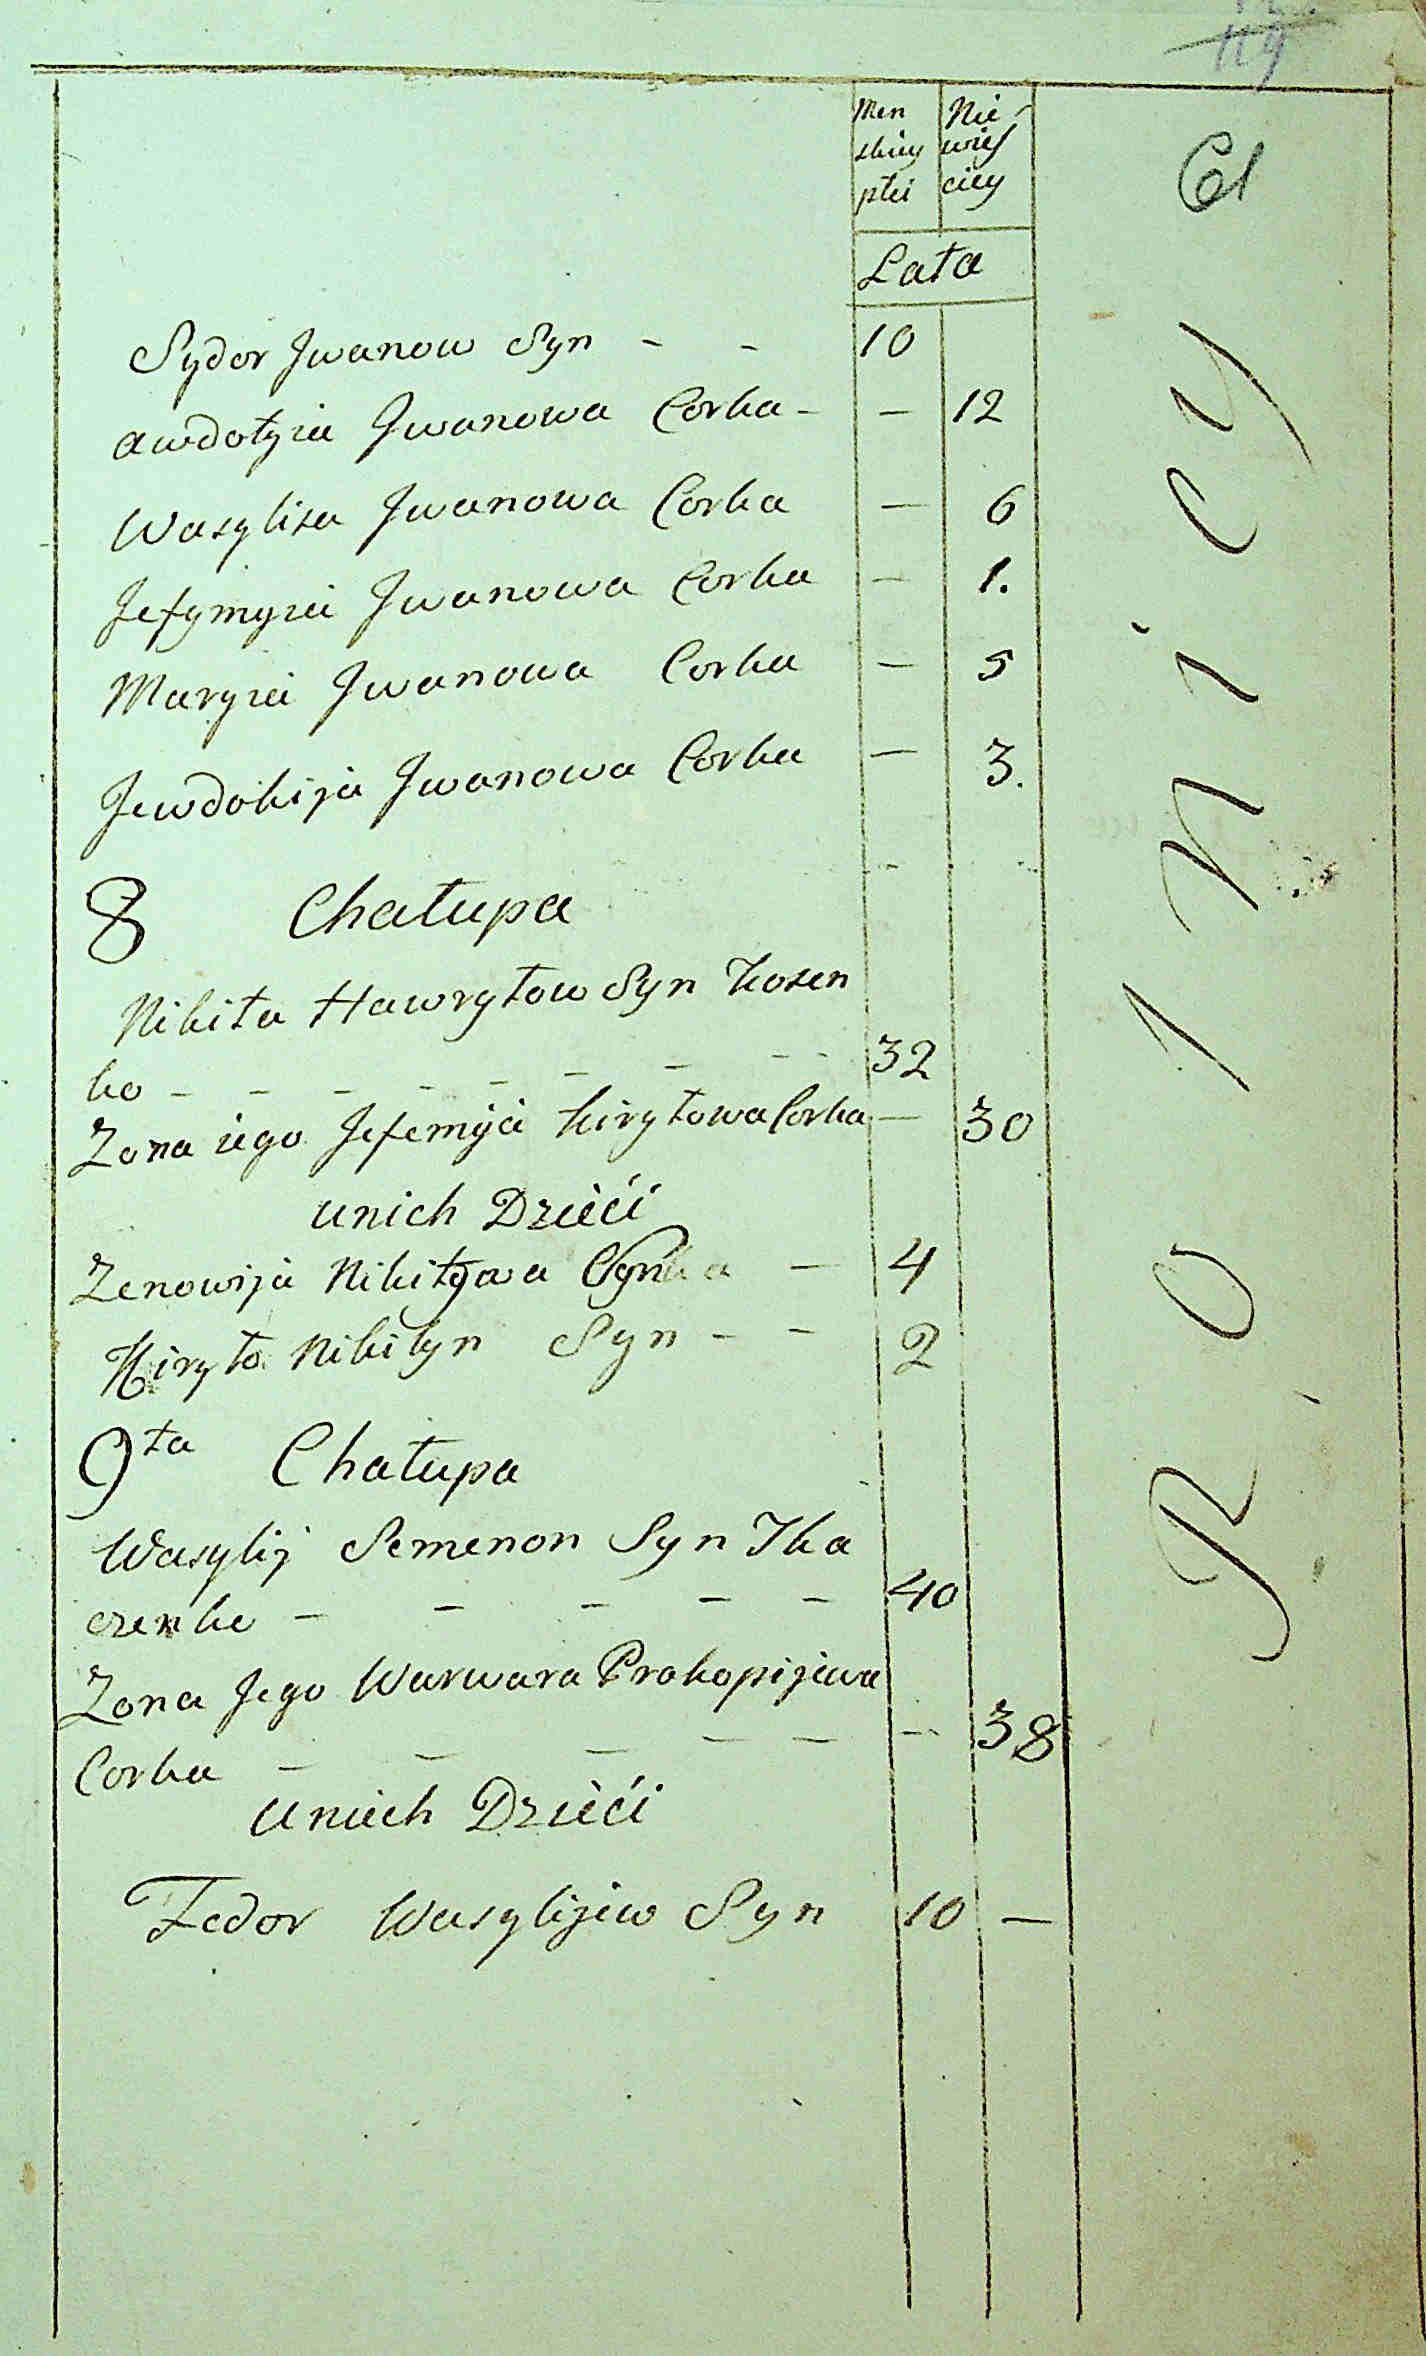 119
Men Nie-
skiey wieś
płci ciey
Lata
Sydor Jwanow Syn - - 10
Awdotyia Jwanowa Corka - - 12
Wasylisa Jwanowa Corka - 6
Jefymyia Jwanowa Corka - 1.
Maryia Jwanowa Corka - 5
Jewdokija Jwanowa Corka - 3.
8 Chałupa
Nikita Hawryłow Syn Kosen
ko - - - - - - - - 32
Zona iego Jefemija Kiryłowa Corka - 30
unich Dzieći
Zenowija Nikityn Syn - 4
Kiryło Nikityn Syn - - 2
9ta Chałupa
Wasylij Semenon Syn Tka
czenko - - - - - 40
Zona Jego Warwara Prokopijewa
Corka - - - - - - 38
unich Dzieći
Fedor Wasylijew Syn 10 -
Rolnicy